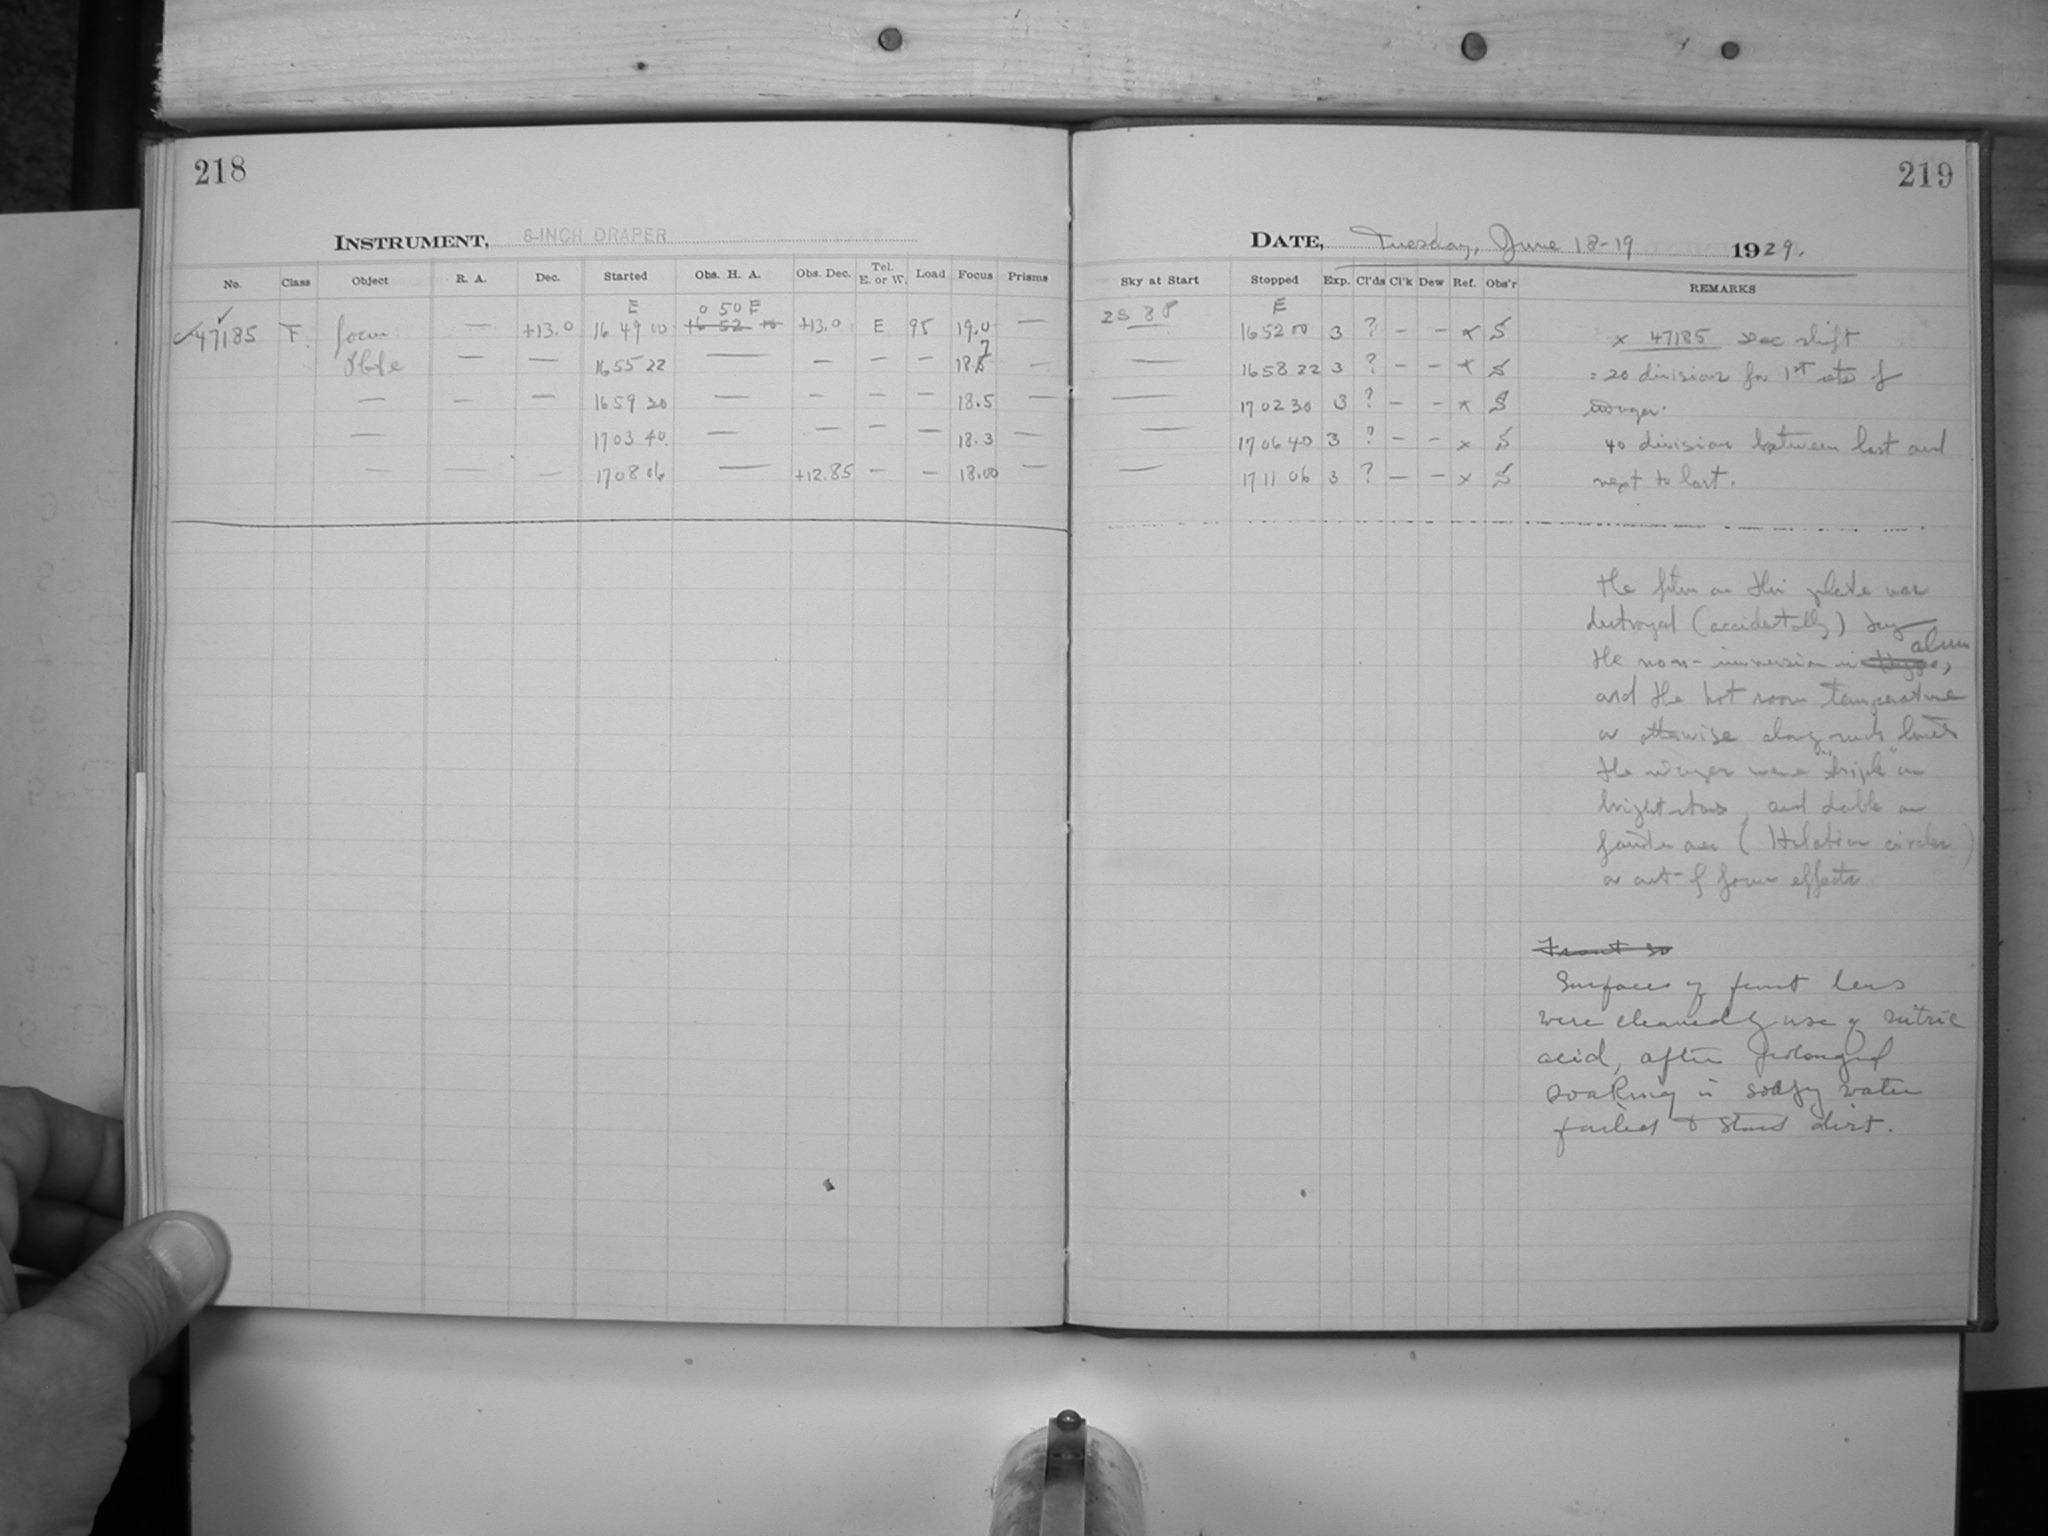 218
INSTRUMENT, 8-INCH DRAPER
No. Class Object R. A. Dec. Started Obs. H. A. Obs. Dec. Tel. E. or W. Load Focus Prisms
E 0 50 E
47185 F. focus — +13.0 16 49 00 16 52 +13.0 E 95 19.0 —
Plate — — 16 55 22 — — — — 18.7 —
— — — 16 59 30 — — — — 18.5 —
— 17 03 40 — — — — 18.3 —
— — — 17 08 06 — +12.85 — — 18.00 —
219
DATE, Tuesday, June 18-19 1929.
Sky at Start Stopped Exp. Cl'ds Cl'k Dew Ref. Obs'r REMARKS
2S 88 E
16 52 00 3 ? — — x S x 47185 Dec shift
— 16 58 22 3 ? — — x S = 20 division for 1st sets of
— 17 02 30 3 ? — — x S images.
— 17 06 40 3 ? — — x S 40 division between last and
— 17 11 06 3 ? — — x S next to last.
The film on this plate was
destroyed (accidentally) by
the non-immersion in alum,
and the hot room temperature
or otherwise along such lines
The images were "triple" on
bright stars, and double on
fainter ones (Halation circles)
or out-of focus effects
Front so
Surfaces of front lens
were cleaned by use of nitric
acid, after prolonged
soaking in soapy water
failed to dirt.